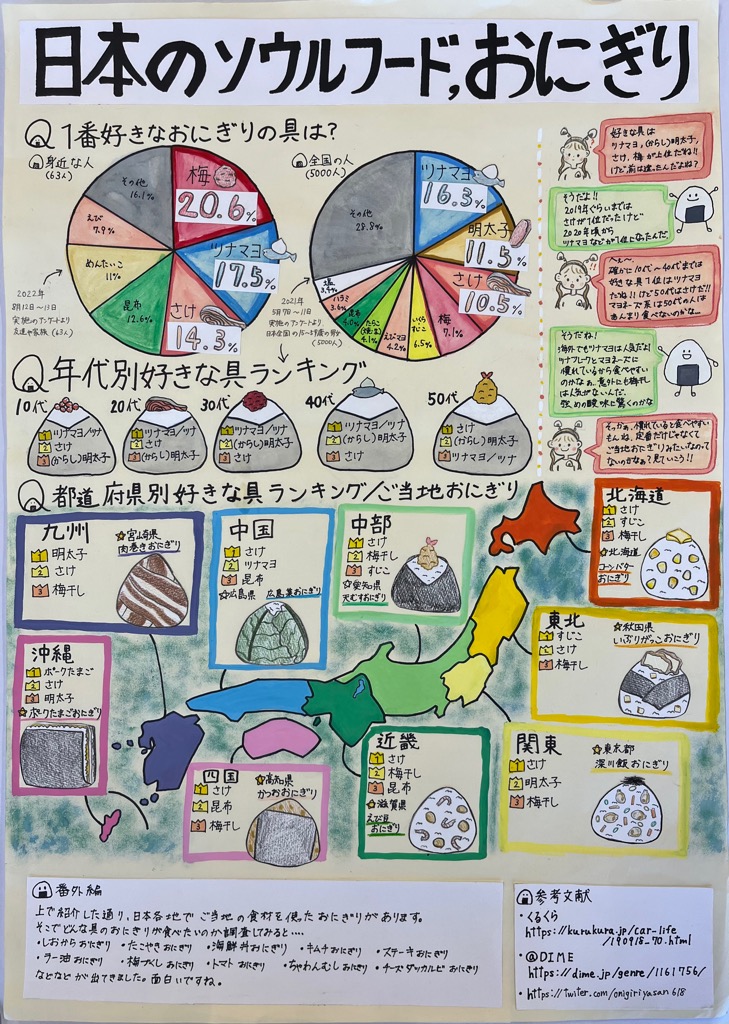 日本のソウルフード,おにぎり
Q 1番好きなおにぎりの具は?
身近な人
(63人)
梅
20.6%
ツナマヨ
17.5%
さけ
14.3%
昆布
12.6%
めんたいこ
11%
えび
7.9%
その他
16.1%
2022年
8月12日〜13日
実施のアンケートより
友達や家族(63人)
全国の人
(5000人)
ツナマヨ
16.3%
明太子
11.5%
さけ
10.5%
梅
7.1%
いくら
すじこ
6.5%
えびマヨ
4.2%
たらこ
4.1%
昆布
4.0%
ハラミ
3.6%
塩
その他
28.8%
2021年
5月9日〜11日
実施のアンケートより
(5000人)
好きな具は
ツナマヨ,(からし)明太子,
さけ,梅が上位だね!!
けど,前は違ったんだよね?
そうだよ!!
2019年ぐらいまでは
さけが1位だったけど
2020年頃から
ツナマヨなどが1位になったんだ
へぇ〜
確かに10代〜40代までは
好きな具1位はツナマヨ
だね!!けど50代はさけだ!!
マヨネーズ系は50代の人は
あんまり食べないのかな…
そうだね!
海外でもツナマヨは人気だよ!
ツナフレークとマヨネーズに
慣れているから食べやすい
のかなぁ。意外にも梅干し
は人気がないんだ。
強めの酸味に驚くのかな
そっかぁ,慣れていると食べやすい
もんね。定番だけじゃなくて
ご当地おにぎりみたいなのって
ないのかなぁ?見ていこう!!
Q 年代別好きな具ランキング
10代
1 ツナマヨ/ツナ
2 さけ
3 (からし)明太子
20代
1 ツナマヨ/ツナ
2 さけ
3 (からし)明太子
30代
1 ツナマヨ/ツナ
2 (からし)明太子
3 さけ
40代
1 ツナマヨ/ツナ
2 (からし)明太子
3 さけ
50代
1 さけ
2 (からし)明太子
3 ツナマヨ/ツナ
Q 都道府県別好きな具ランキング/ご当地おにぎり
九州
1 明太子
2 さけ
3 梅干し
☆宮崎県
肉巻きおにぎり
中国
1 さけ
2 ツナマヨ
3 昆布
☆広島県 広島菜おにぎり
中部
1 さけ
2 梅干し
3 すじこ
☆愛知県
天むすおにぎり
北海道
1 さけ
2 すじこ
3 梅干し
☆北海道
コーンバター
おにぎり
東北
1 すじこ
2 さけ
3 梅干し
☆秋田県
いぶりがっこおにぎり
沖縄
1 ポークたまご
2 さけ
3 明太子
☆ポークたまごおにぎり
四国
1 さけ
2 昆布
3 梅干し
☆高知県
かつおおにぎり
近畿
1 さけ
2 梅干し
3 昆布
☆滋賀県
えび豆
おにぎり
関東
1 さけ
2 明太子
3 梅干し
☆東京都
深川飯おにぎり
番外編
上で紹介した通り,日本各地でご当地の食材を使ったおにぎりがあります。
そこでどんな具のおにぎりが食べたいのか調査してみると….
・しおからおにぎり ・たこやきおにぎり ・海鮮丼おにぎり ・キムチおにぎり ・ステーキおにぎり
・ラー油おにぎり ・梅づくしおにぎり ・トマトおにぎり ・ちゃわんむしおにぎり ・チーズダッカルビおにぎり
などなどが出てきました。面白いですね。
参考文献
・くるくら
https://kurukura.jp/car-life
/190918-70.html
・@DIME
https://dime.jp/genre/1161756/
・https://twiter.com/onigiriyasan618